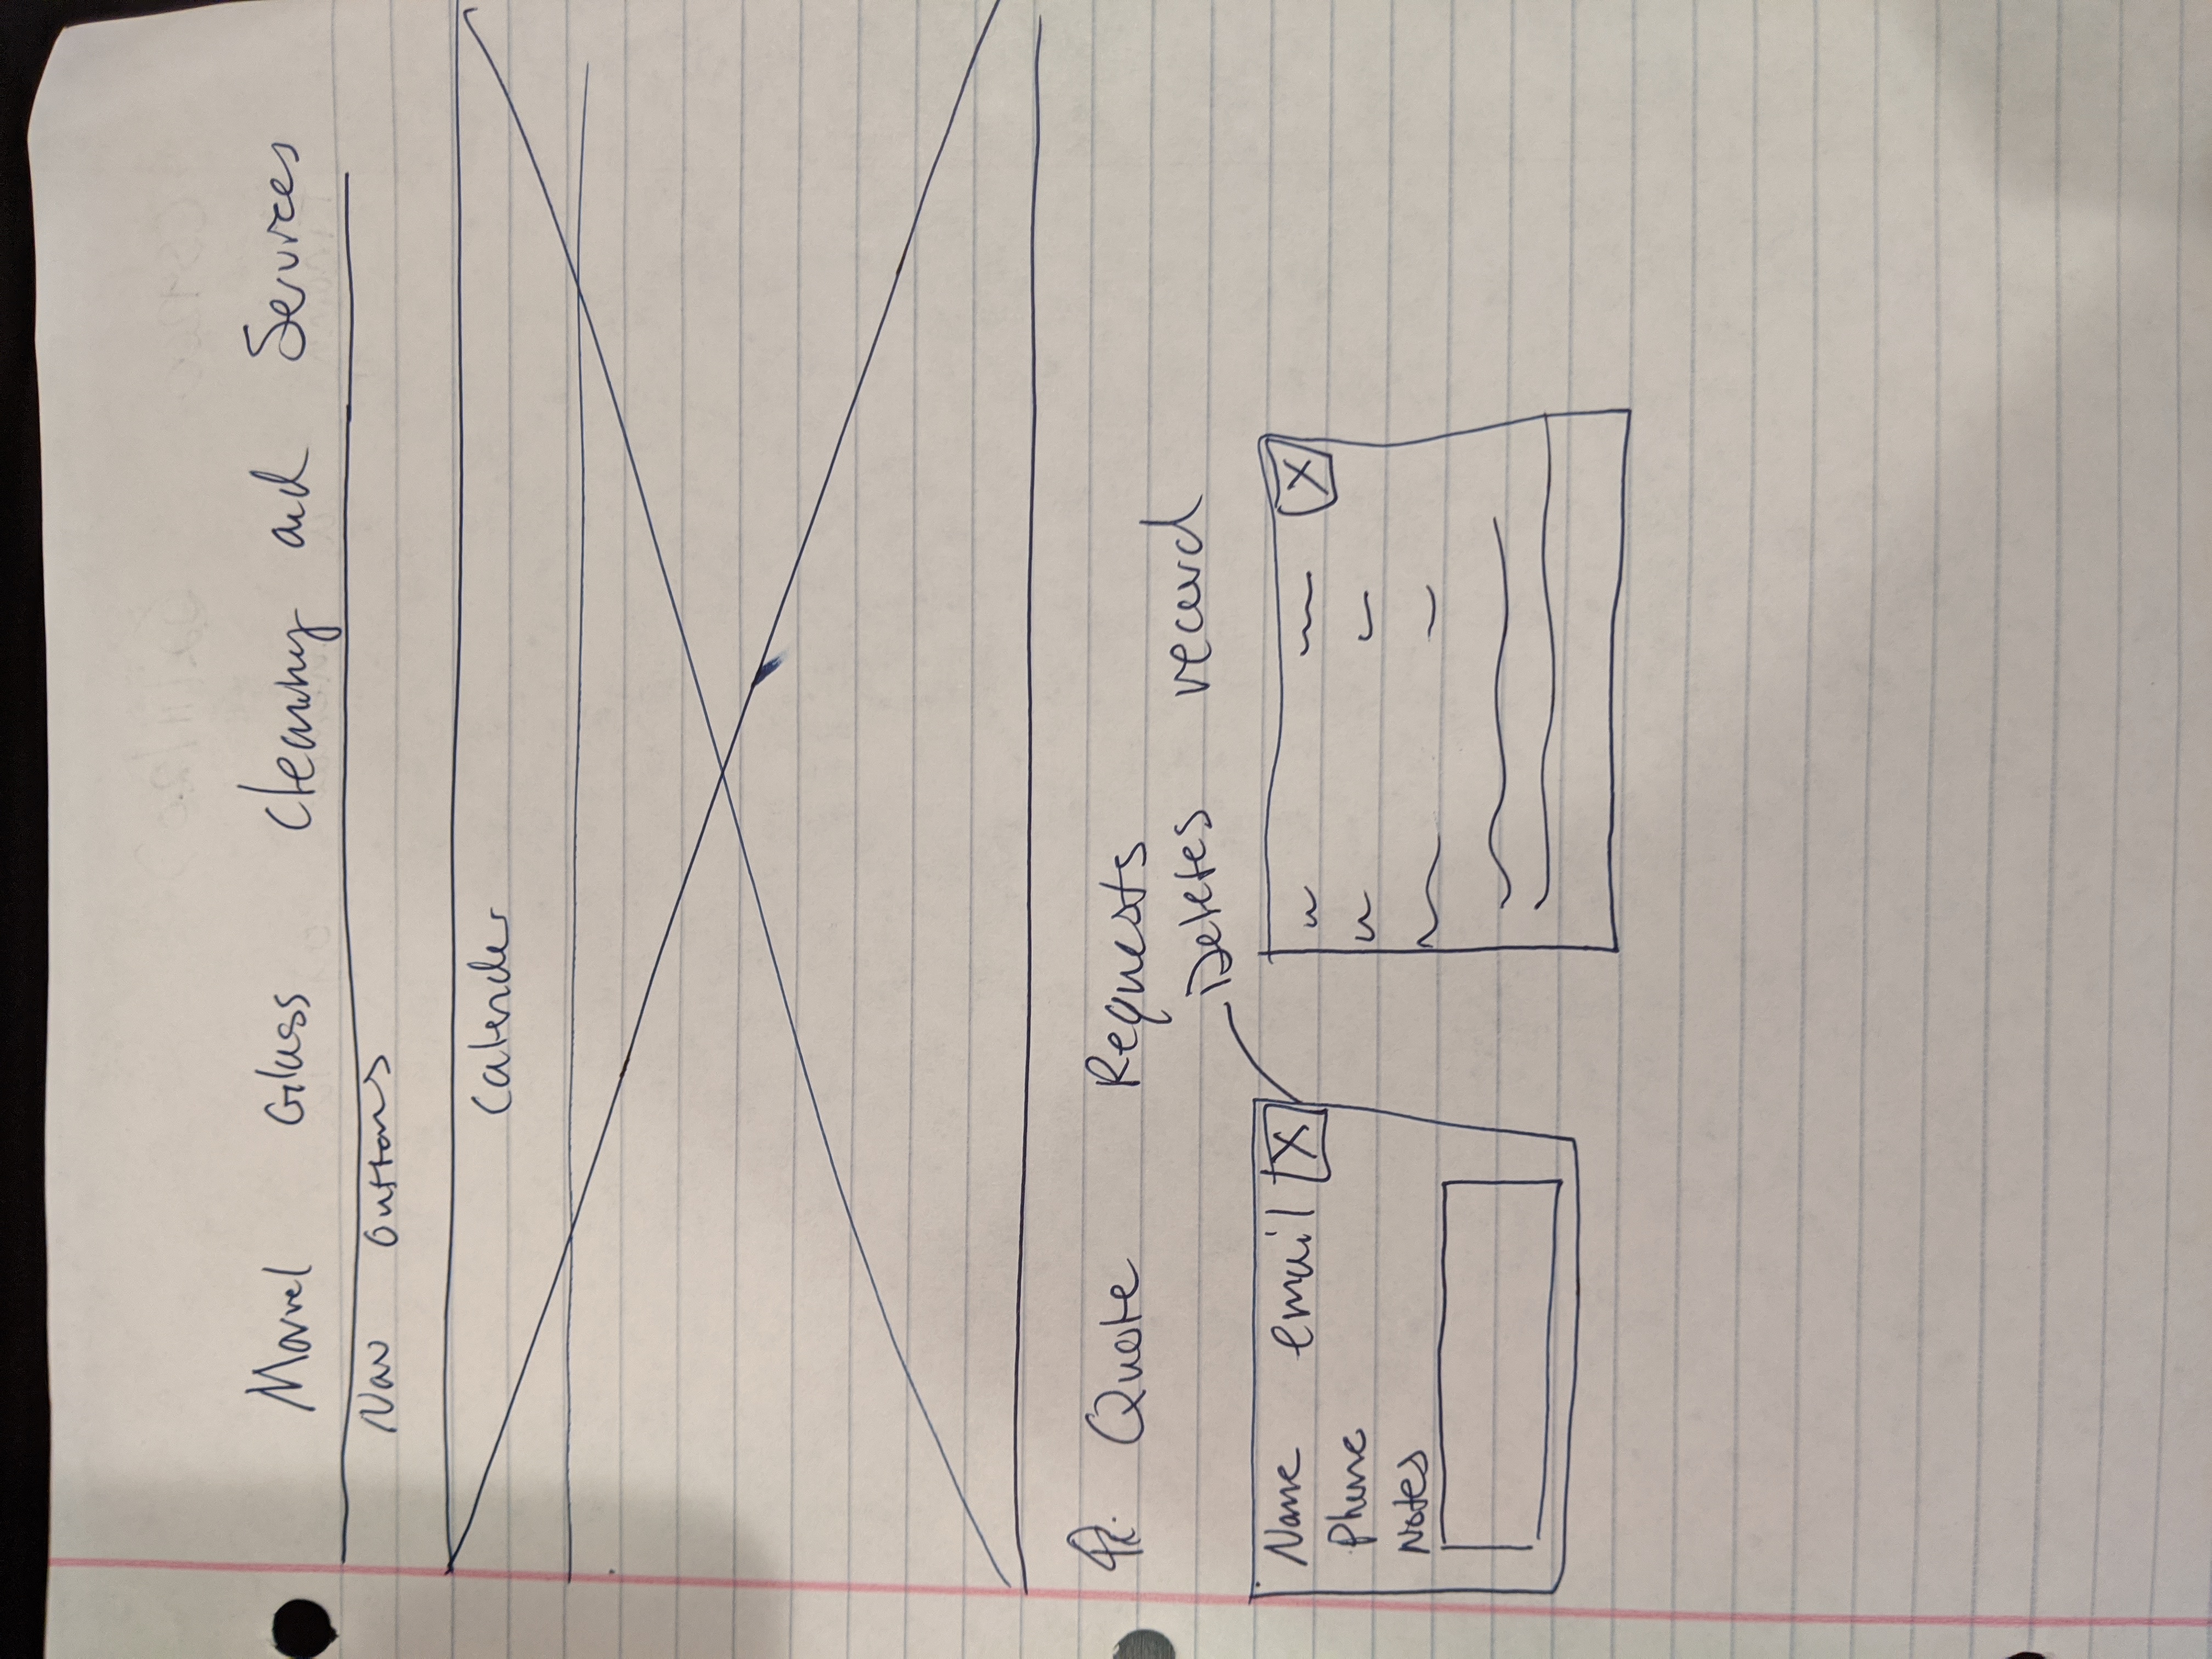 Marvel Glass Cleaning and Services
Nav Buttons
Calender
Quote Requests
Deletes record
Name email X
Phone
Notes
X